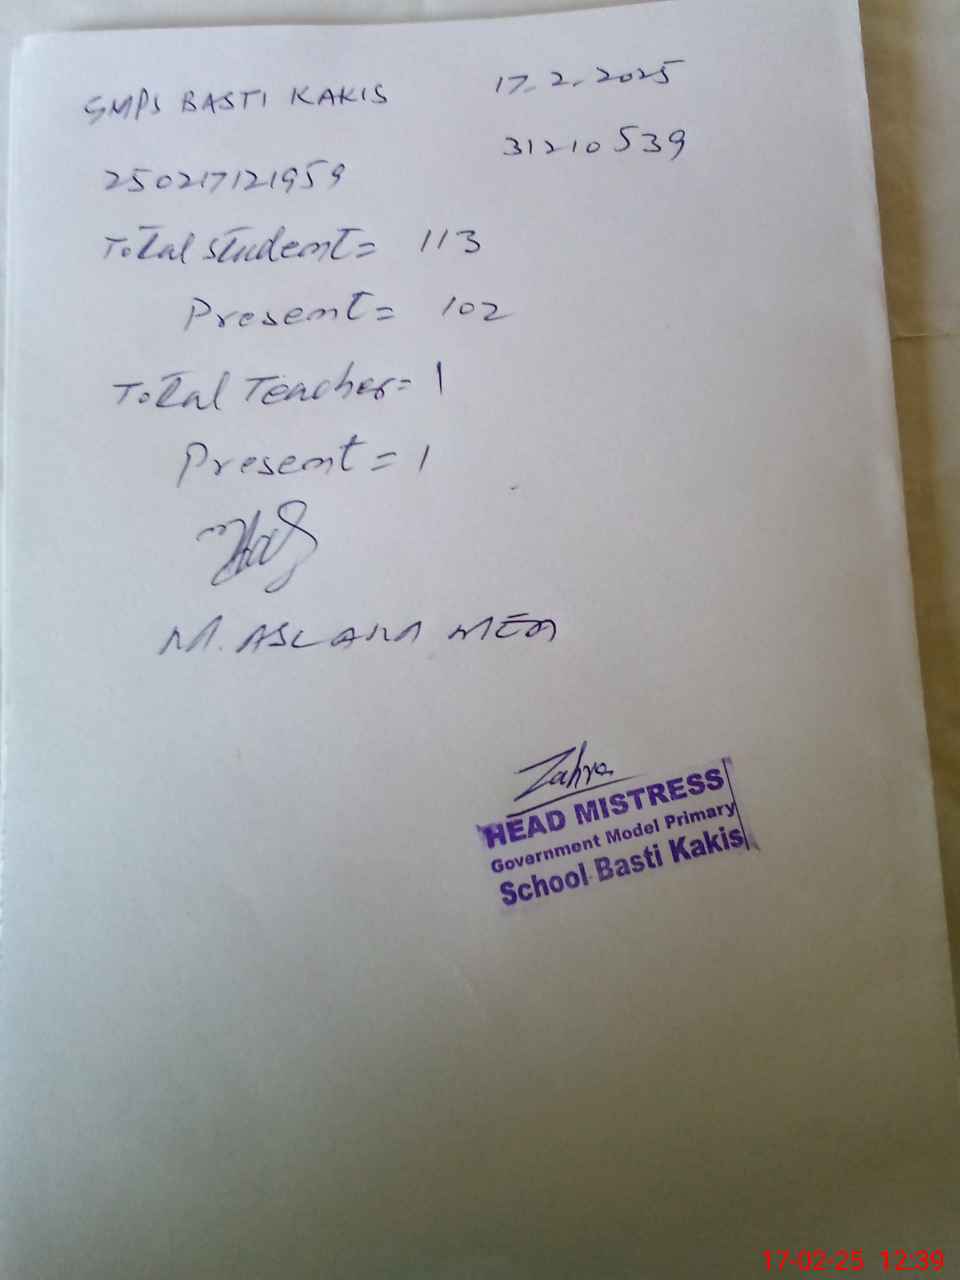 GMPS BASTI KAKIS 17.2.2025
31210539
250217121959
Total student = 113
Present = 102
Total Teacher = 1
Present = 1
M. ASLAM MEA
Zahra
HEAD MISTRESS
Government Model Primary
School Basti Kakis
17-02-25 12:39